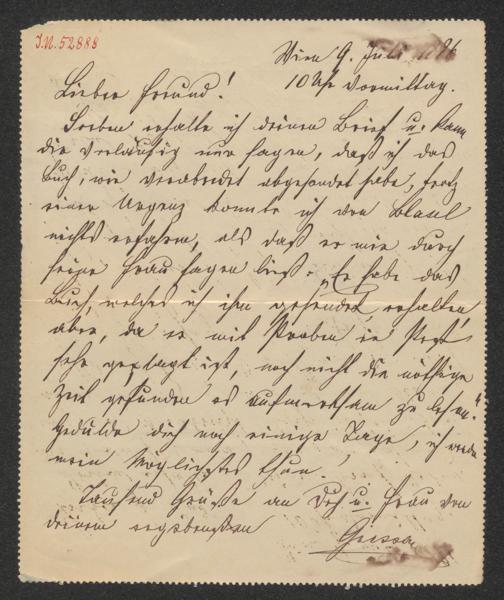 J.N. 52888
Wien 9. Juli 1896
10 Uhr Vormittag.
Lieber Freund!
Soeben erhalte ich deinen Brief u. kann
dir vorläufig nur sagen, daß ich das
Buch, wie verabredet abgesendet habe, trotz
einer Urgenz konnte ich von Blasel
nichts erfahren, als daß er mir durch
seine Frau sagen ließ: „Er habe das
Buch, welches ich ihm gesendet, erhalten
aber, da er mit Proben in Pest
sehr geplagt ist, noch nicht die nöthige
Zeit gefunden es aufmerksam zu lesen."
Gedulde dich noch einige Tage, ich werde
mein Möglichstes thun!
Tausend Grüße an Dich u. Frau von
deinem ergebensten